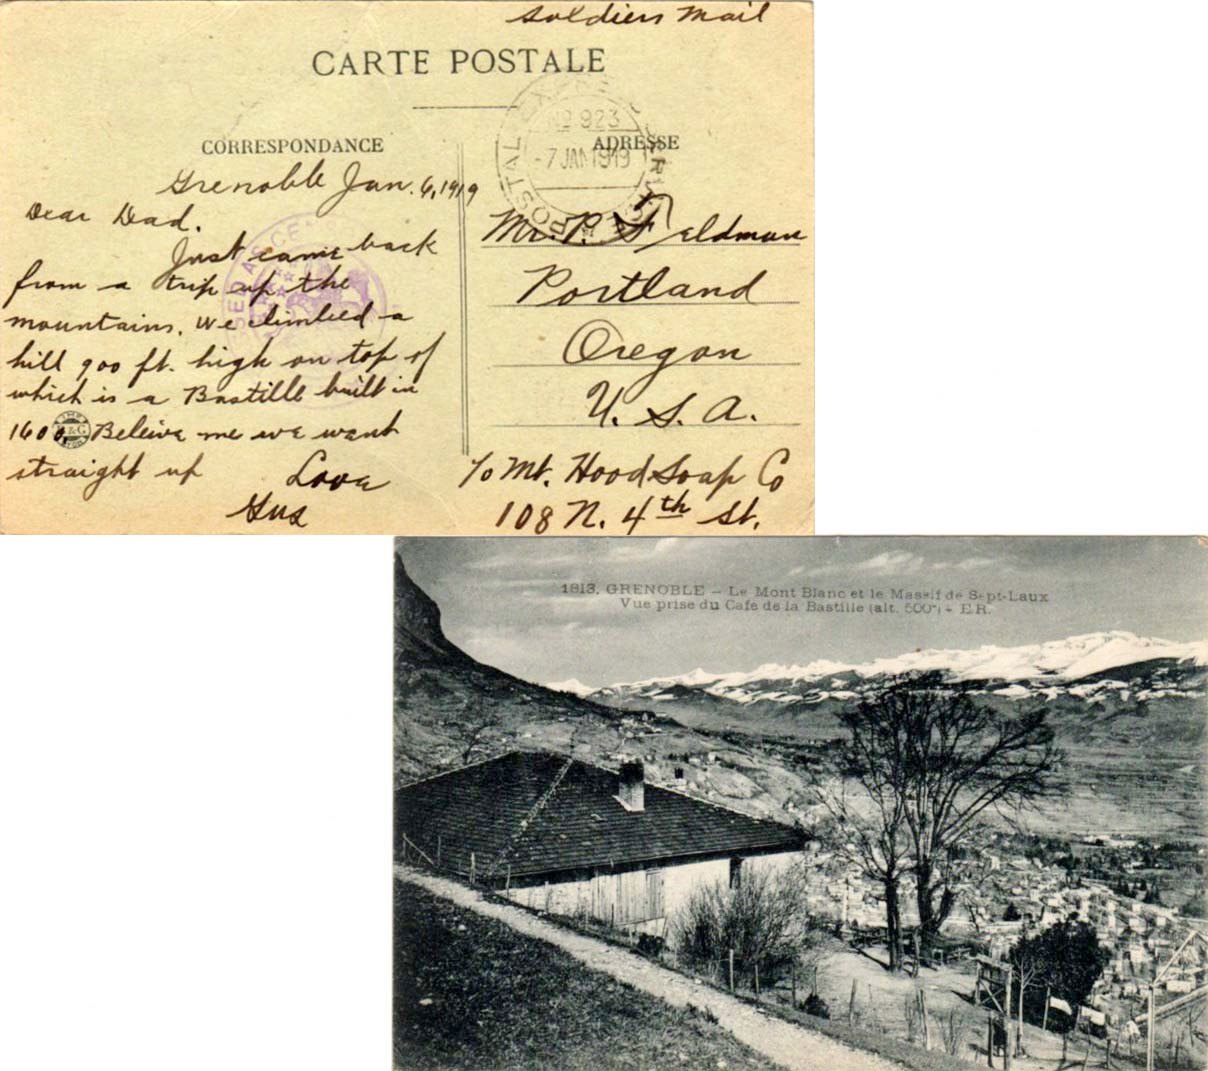 Soldiers Mail
CARTE POSTALE
CORRESPONDANCE
ADRESSE
POSTAL EXPRESS SERVICE
No 923
-7 JAN 1919
Grenoble Jan. 6, 1919
Dear Dad.
Just came back
from a trip up the
mountains. We climbed a
hill 900 ft. high on top of
which is a Bastille built in
1600. Beleive me we went
straight up
Love
Gus
Mr. P. Feldman
Portland
Oregon
U. S. A.
% Mt. Hood Soap Co
108 N. 4th St.
1813. GRENOBLE – Le Mont Blanc et le Massif de Sept-Laux
Vue prise du Café de la Bastille (alt. 500m) - E.R.